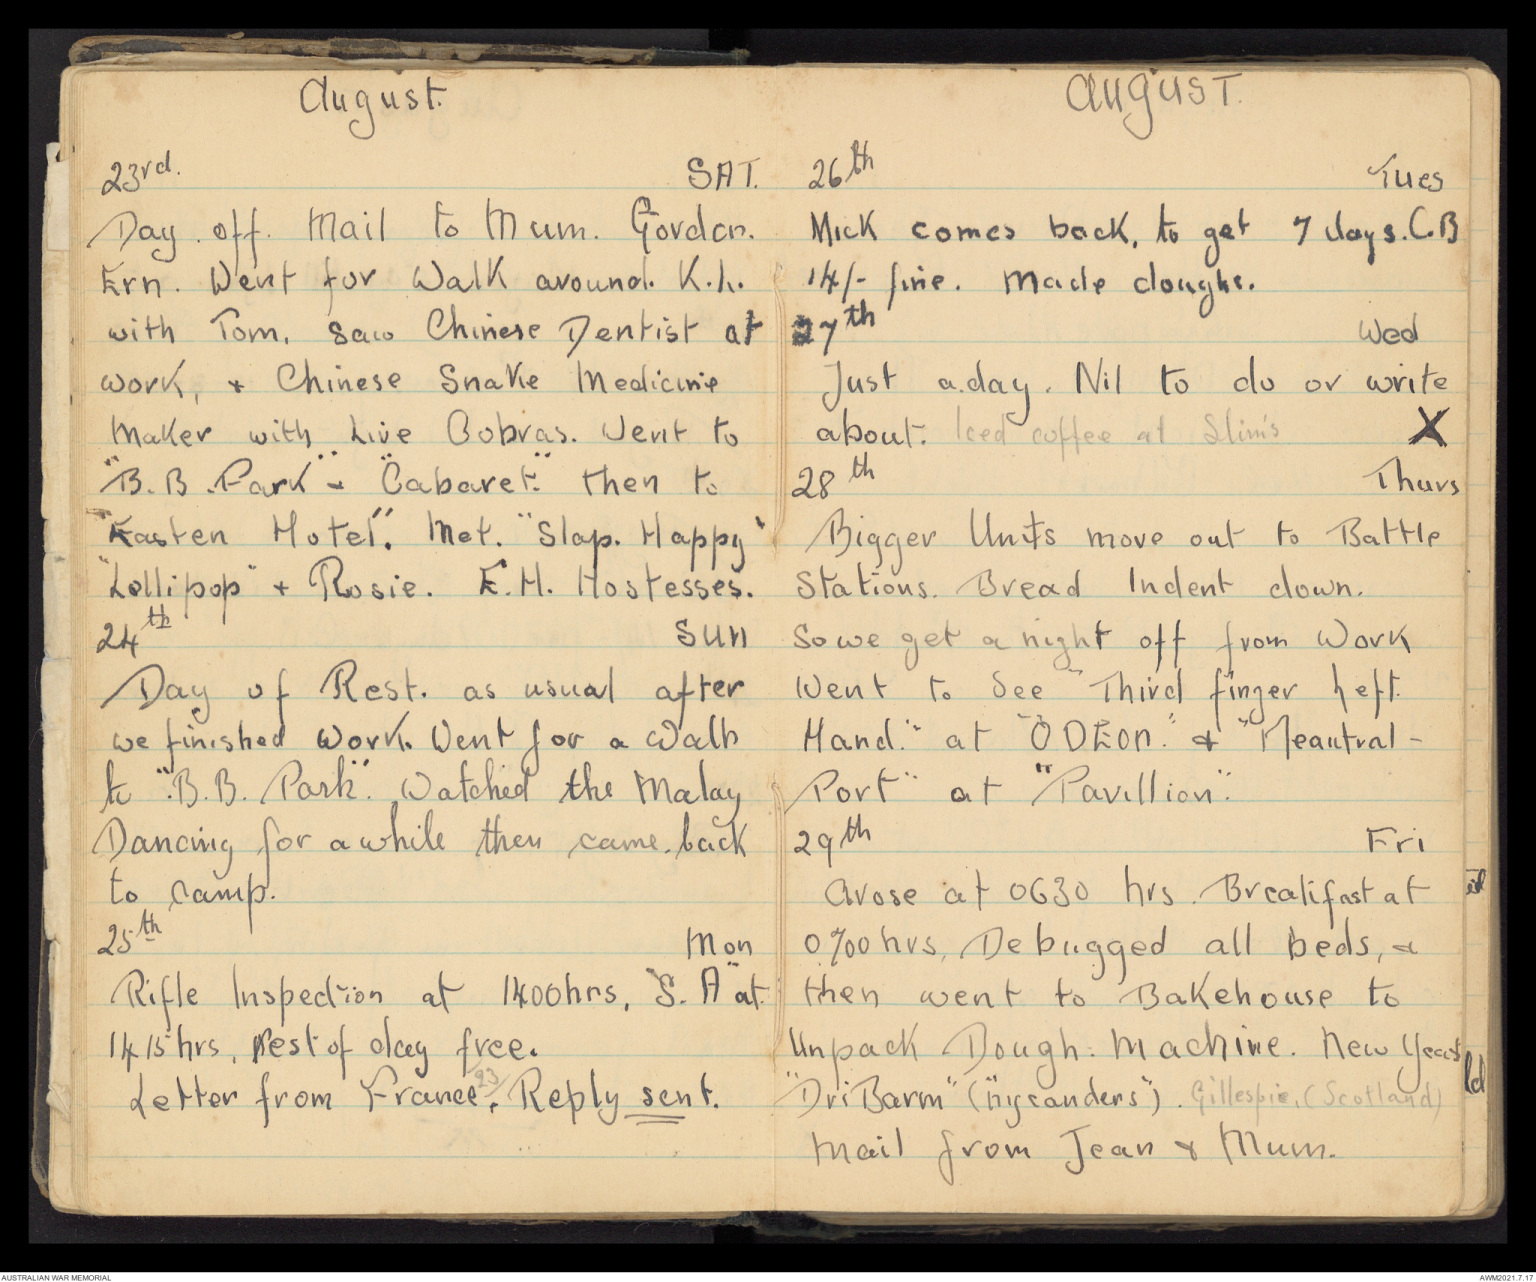 August.
23rd. SAT.
Day off. Mail to Mum. Gordon.
Ern. Went for Walk around. K.L.
with Tom, saw Chinese Dentist at
work, + Chinese Snake Medicine
Maker with Live Cobras. Went to
"B.B. Park" + "Cabaret." then to
"Easten Hotel". Met. "Slap. Happy"
"Lollipop" + Rosie. E.H. Hostesses.
24th SUN
Day of Rest. as usual after
we finished work. Went for a Walk
to "B.B. Park". Watched the Malay
Dancing for a while then came back
to camp.
25th Mon
Rifle Inspection at 1400hrs, "S.A" at
1415hrs, Rest of day free.
Letter from France 23/. Reply sent.
AUGUST.
26th Tues
Mick comes back, to get 7 days. C.B
14/- fine. Made doughs.
27th Wed
Just a day. Nil to do or write
about. Iced coffee at Slim's X
28th Thurs
Bigger Units move out to Battle
Stations. Bread Indent down.
So we get a night off from Work
Went to See "Third finger Left
Hand." at "ODEON." & "Neautral -
Port" at "Pavillion".
29th Fri
Arose at 0630 hrs. Breakfast at
0700hrs, Debugged all beds, +
then went to Bakehouse to
Unpack Dough. Machine. New Yeast
"DriBarm" ( ). Gillespie, (Scotland)
Mail from Jean & Mum.
AUSTRALIAN WAR MEMORIAL
AWM2021.7.17